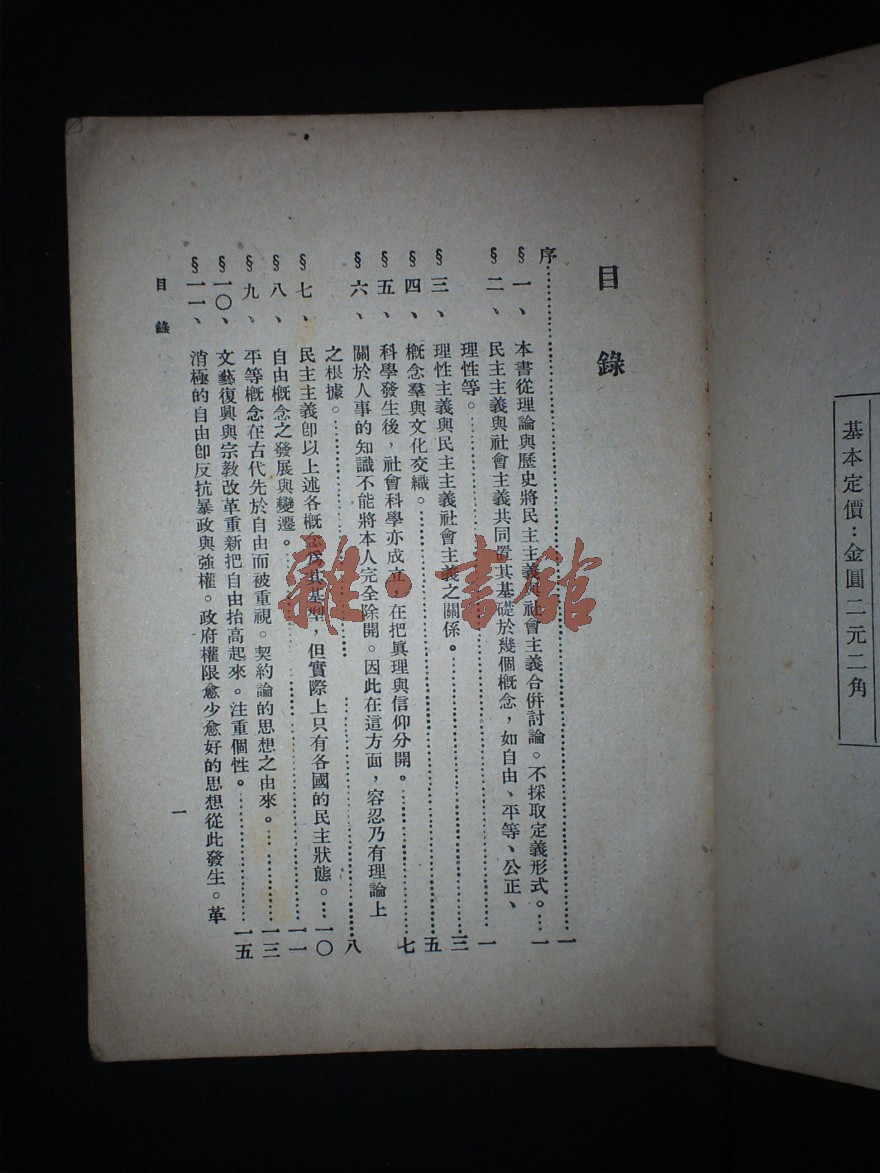 基本定價：金圓二元二角
目錄
序……一
§一、本書從理論與歷史將民主主義與社會主義合併討論。不採取定義形式。…一
§二、民主主義與社會主義共同置其基礎於幾個概念，如自由、平等、公正、
理性等。……一
§三、理性主義與民主主義社會主義之關係。……三
§四、概念羣與文化交織。……五
§五、科學發生後，社會科學亦成立，在把眞理與信仰分開。……七
§六、關於人事的知識不能將本人完全除開。因此在這方面，容忍乃有理論上
之根據。……八
§七、民主主義卽以上述各概念爲其基型，但實際上只有各國的民主狀態。…一〇
§八、自由概念之發展與變遷。……一一
§九、平等概念在古代先於自由而被重視。契約論的思想之由來。……一三
§一〇、文藝復興與宗教改革重新把自由抬高起來。注重個性。……一五
§一一、消極的自由卽反抗暴政與強權。政府權限愈少愈好的思想從此發生。革
目錄
一
雜·書館